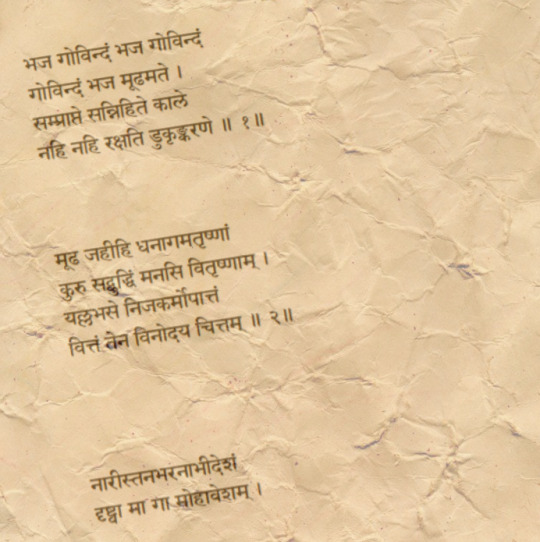 भज गोविन्दं भज गोविन्दं
गोविन्दं भज मूढमते ।
सम्प्राप्ते सन्निहिते काले
नहि नहि रक्षति डुकृङ्करणे ॥ १॥
मूढ जहीहि धनागमतृष्णां
कुरु सद्बुद्धिं मनसि वितृष्णाम् ।
यल्लभसे निजकर्मोपात्तं
वित्तं तेन विनोदय चित्तम् ॥ २॥
नारीस्तनभरनाभीदेशं
दृष्ट्वा मा गा मोहावेशम् ।